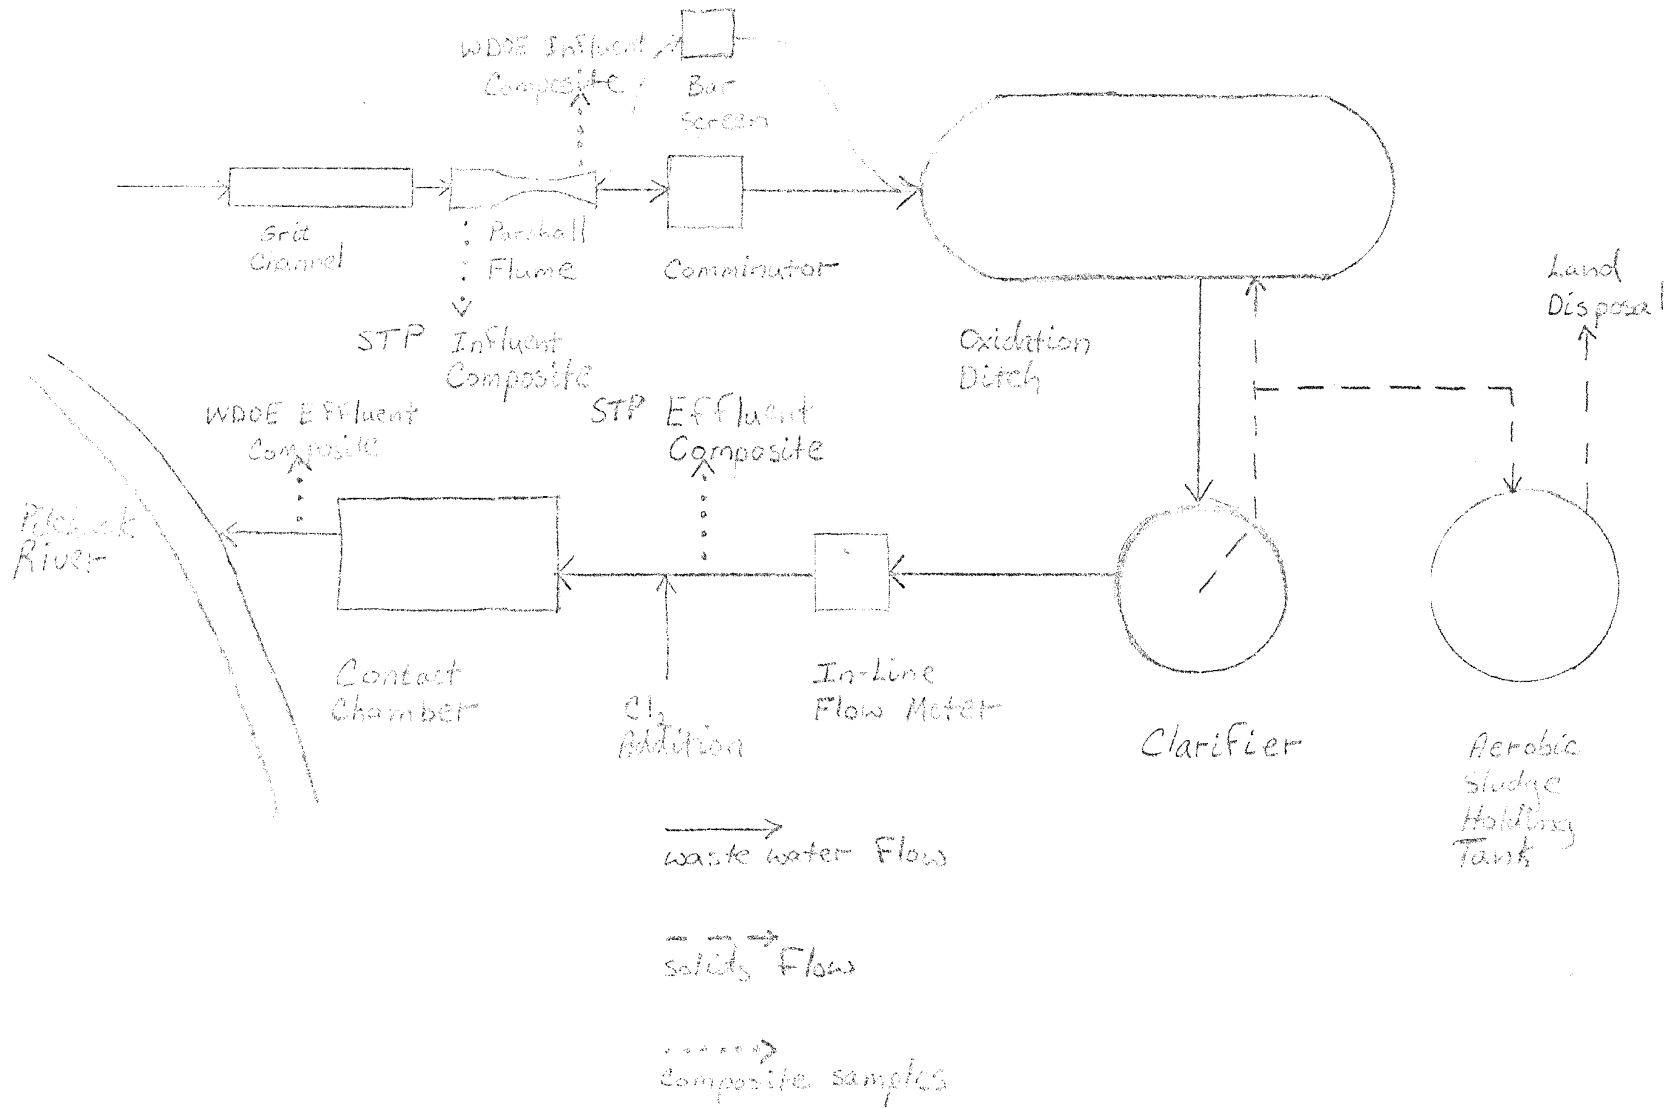 WDOE Influent
Composite
Bar
Screen
Grit
Channel
Parshall
Flume
Comminutor
STP Influent
Composite
Oxidation
Ditch
Land
Disposal
WDOE Effluent
Composite
STP Effluent
Composite
Pilchuck
River
Contact
Chamber
Cl2
Addition
In-Line
Flow Meter
Clarifier
Aerobic
Sludge
Holding
Tank
waste water Flow
solids Flow
composite samples